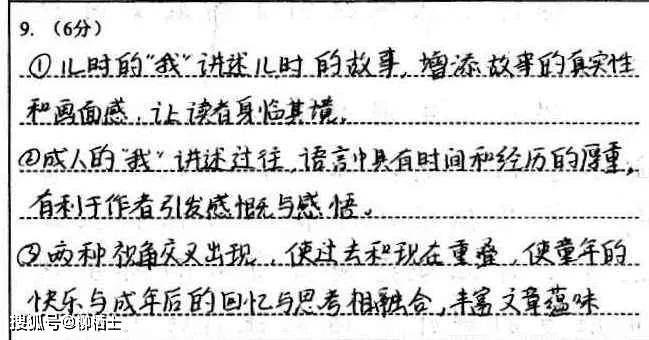 9. （6分）
①儿时的“我”讲述儿时的故事，增添故事的真实性
和画面感，让读者身临其境。
②成人的“我”讲述过往，语言中具有时间和经历的厚重，
有利于作者引发感慨与感悟。
③两种视角交叉出现，使过去和现在重叠，使童年的
快乐与成年后的回忆与思考相融合，丰富文章蕴味
搜狐号@柳栖士